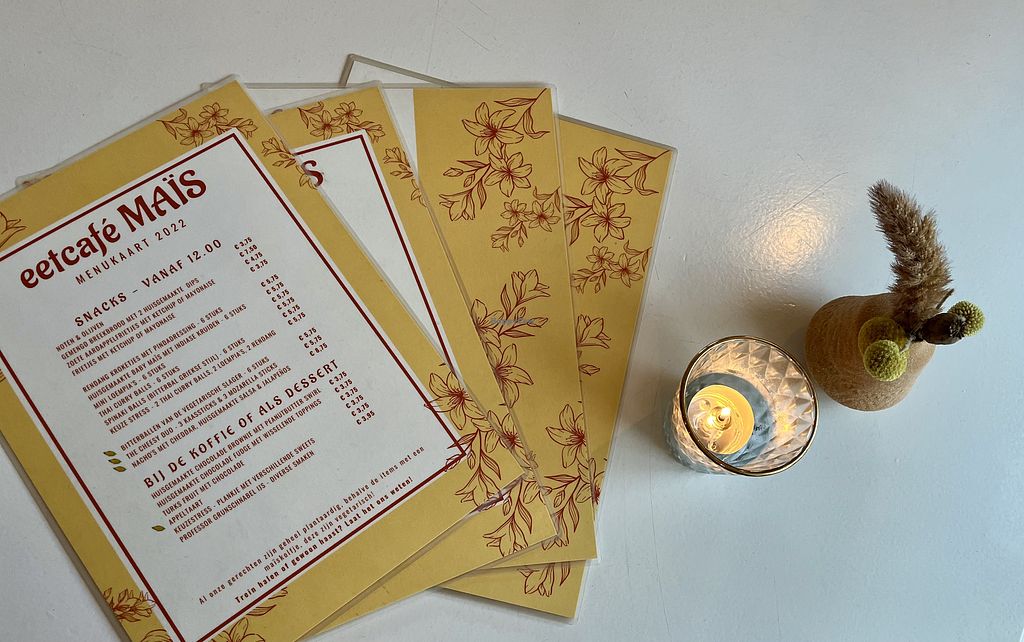 eetcafé MAÏS
MENUKAART 2022
SNACKS - VANAF 12.00
NOTEN & OLIJVEN € 3,75
GEMEND BREEKBROOD MET 2 HUISGEMAAKTE DIPS € 7,50
ZOETE AARDAPPELFRIETJES MET KETCHUP OF MAYONAISE € 4,75
FRIETJES MET KETCHUP OF MAYONAISE € 3,75
RENDANG KROKETJES MET PINDADRESSING - 6 STUKS
HUISGEMAAKTE BABY MAÏS MET INDIASE KRUIDEN - 6 STUKS
MINI LOEMPIA'S - 8 STUKS
THAI CURRY BALLS - 6 STUKS
SPINAKI BALLS (BITTERBAL GRIEKSE STIJL) - 6 STUKS
KEUZE STRESS - 2 THAI CURRY BALLS, 2 LOEMPIA'S, 2 RENDANG
BITTERBALLEN VAN DE VEGETARISCHE SLAGER - 6 STUKS
THE CHEESY DUO - 3 KAASSTICKS & 3 MOZARELLA STICKS
NACHO'S MET CHEDDAR, HUISGEMAAKTE SALSA & JALAPEÑOS
BIJ DE KOFFIE OF ALS DESSERT
HUISGEMAAKTE CHOCOLADE BROWNIE MET PEANUTBUTTER SWIRL
HUISGEMAAKTE CHOCOLADE FUDGE MET WISSELENDE TOPPINGS
TURKS FRUIT MET CHOCOLADE
APPELTAART
KEUZESTRESS - PLANKJE MET VERSCHILLENDE SWEETS
PROFESSOR GRUNSCHNABEL IJS - DIVERSE SMAKEN
Al onze gerechten zijn geheel plantaardig, behalve de items met een
maiskolfje, deze zijn vegetarisch!
Trein halen of gewoon haast? Laat het ons weten!
S